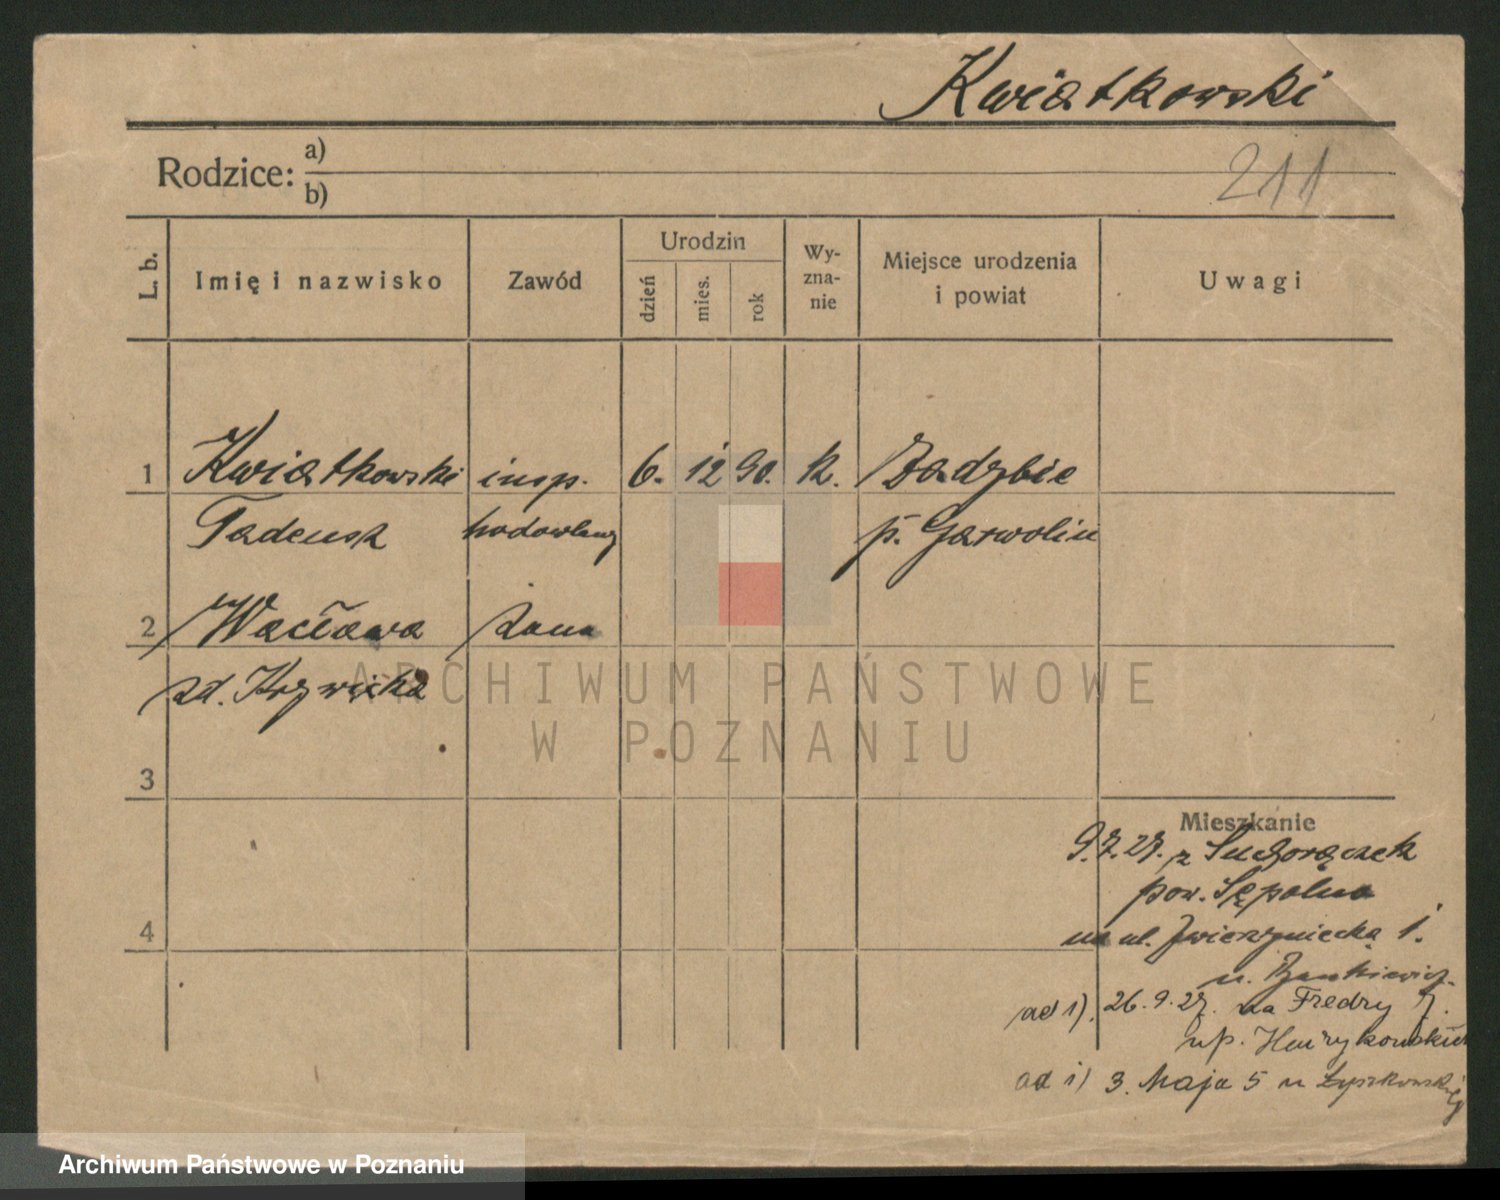 Kwiatkowski
Rodzice: a)
b)
211
L. b.
Imię i nazwisko
Zawód
Urodzin
dzień
mies.
rok
Wy-
zna-
nie
Miejsce urodzenia
i powiat
Uwagi
1 Kwiatkowski insp. 6. 12 90. k. Zadybie
Tadeusz hodowlany p. Garwolin
2 Wacława żona
zd. Krzywicka
3
4
Mieszkanie
9.7.27. z Suchorączek
pow. Sępolno
na ul. Zwierzyniecką 1.
u.
ad 1). 26.9.27. na Fredry 7.
up.
ad 1) 3. Maja 5 u Łyszkowskiej
ARCHIWUM PAŃSTWOWE
W POZNANIU
Archiwum Państwowe w Poznaniu